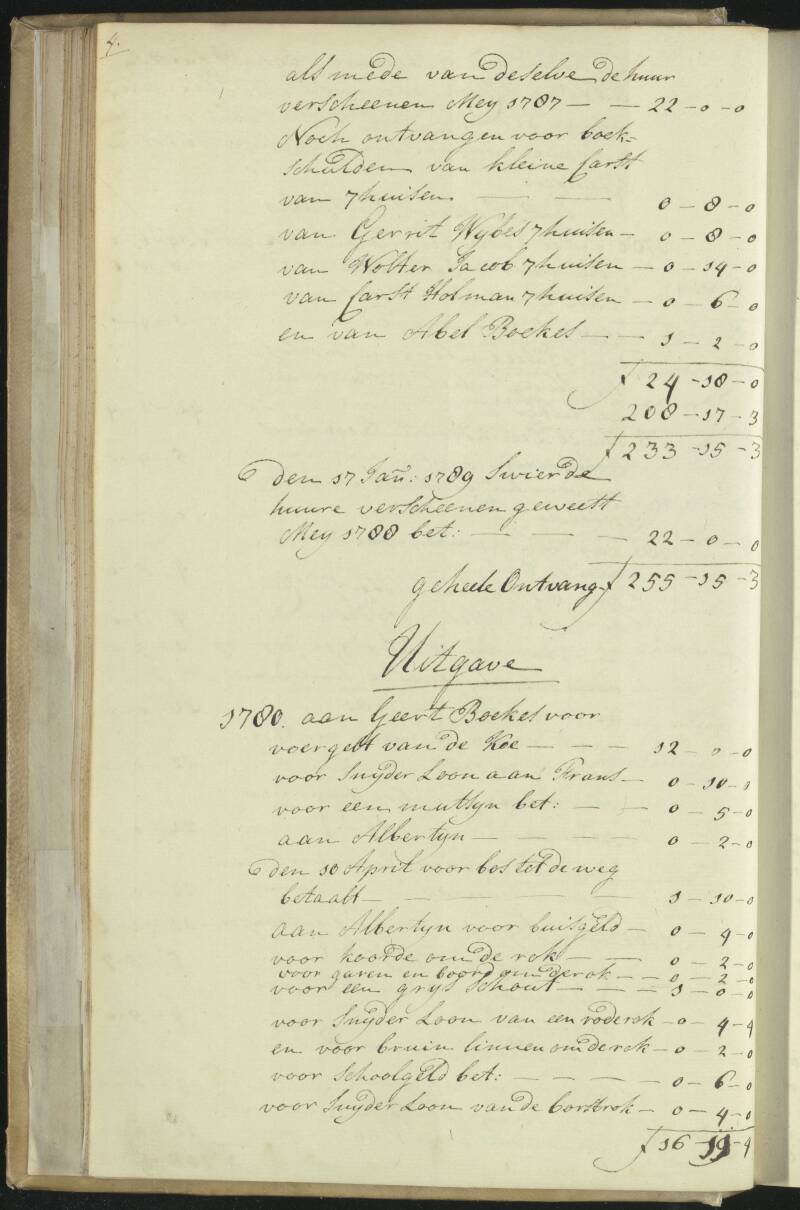 4.
als mede van deselve de huur
verscheenen Mey 1787 — — 22 - 0 - 0
Noch ontvangen voor boek-
schulden van kleine Carst
van 7huisen — — 0 - 8 - 0
van Gerrit Wybes 7huisen — 0 - 8 - 0
van Wolter Jacob 7huisen — 0 - 14 - 0
van Carst Holman 7huisen — 0 - 6 - 0
en van Abel Boekes — — 1 - 2 - 0
f 24 - 18 - 0
208 - 17 - 3
f 233 - 15 - 3
den 17 Jañ: 1789 Swier de
huure verscheenen geweest
Mey 1788 bet: — — — 22 - 0 - 0
geheele Ontvang f 255 - 15 - 3
Uitgave
1780. aan Geert Boekes voor
voer gelt van de Koe — — — 12 - 0 - 0
voor Snyder Loon aan Frans — 0 - 10 - 0
voor een mutsyn bet: — — 0 - 5 - 0
aan Albertyn — — — — 0 - 2 - 0
den 10 April voor bestel de weg
betaalt — — — — — 1 - 10 - 0
aan Albertyn voor buisgeld — 0 - 4 - 0
voor koorde om de rok — — 0 - 2 - 0
voor garen en boord om de rok — — 0 - 2 - 0
voor een grys schout — — — 1 - 0 - 0
voor Snyder Loon van een rode rok — 0 - 4 - 4
en voor bruin linnen om de rok — 0 - 2 - 0
voor Schoolgeld bet: — — — — 0 - 6 - 0
voor Snyder Loon van de borstrok — 0 - 4 - 0
f 16 - 11 - 4